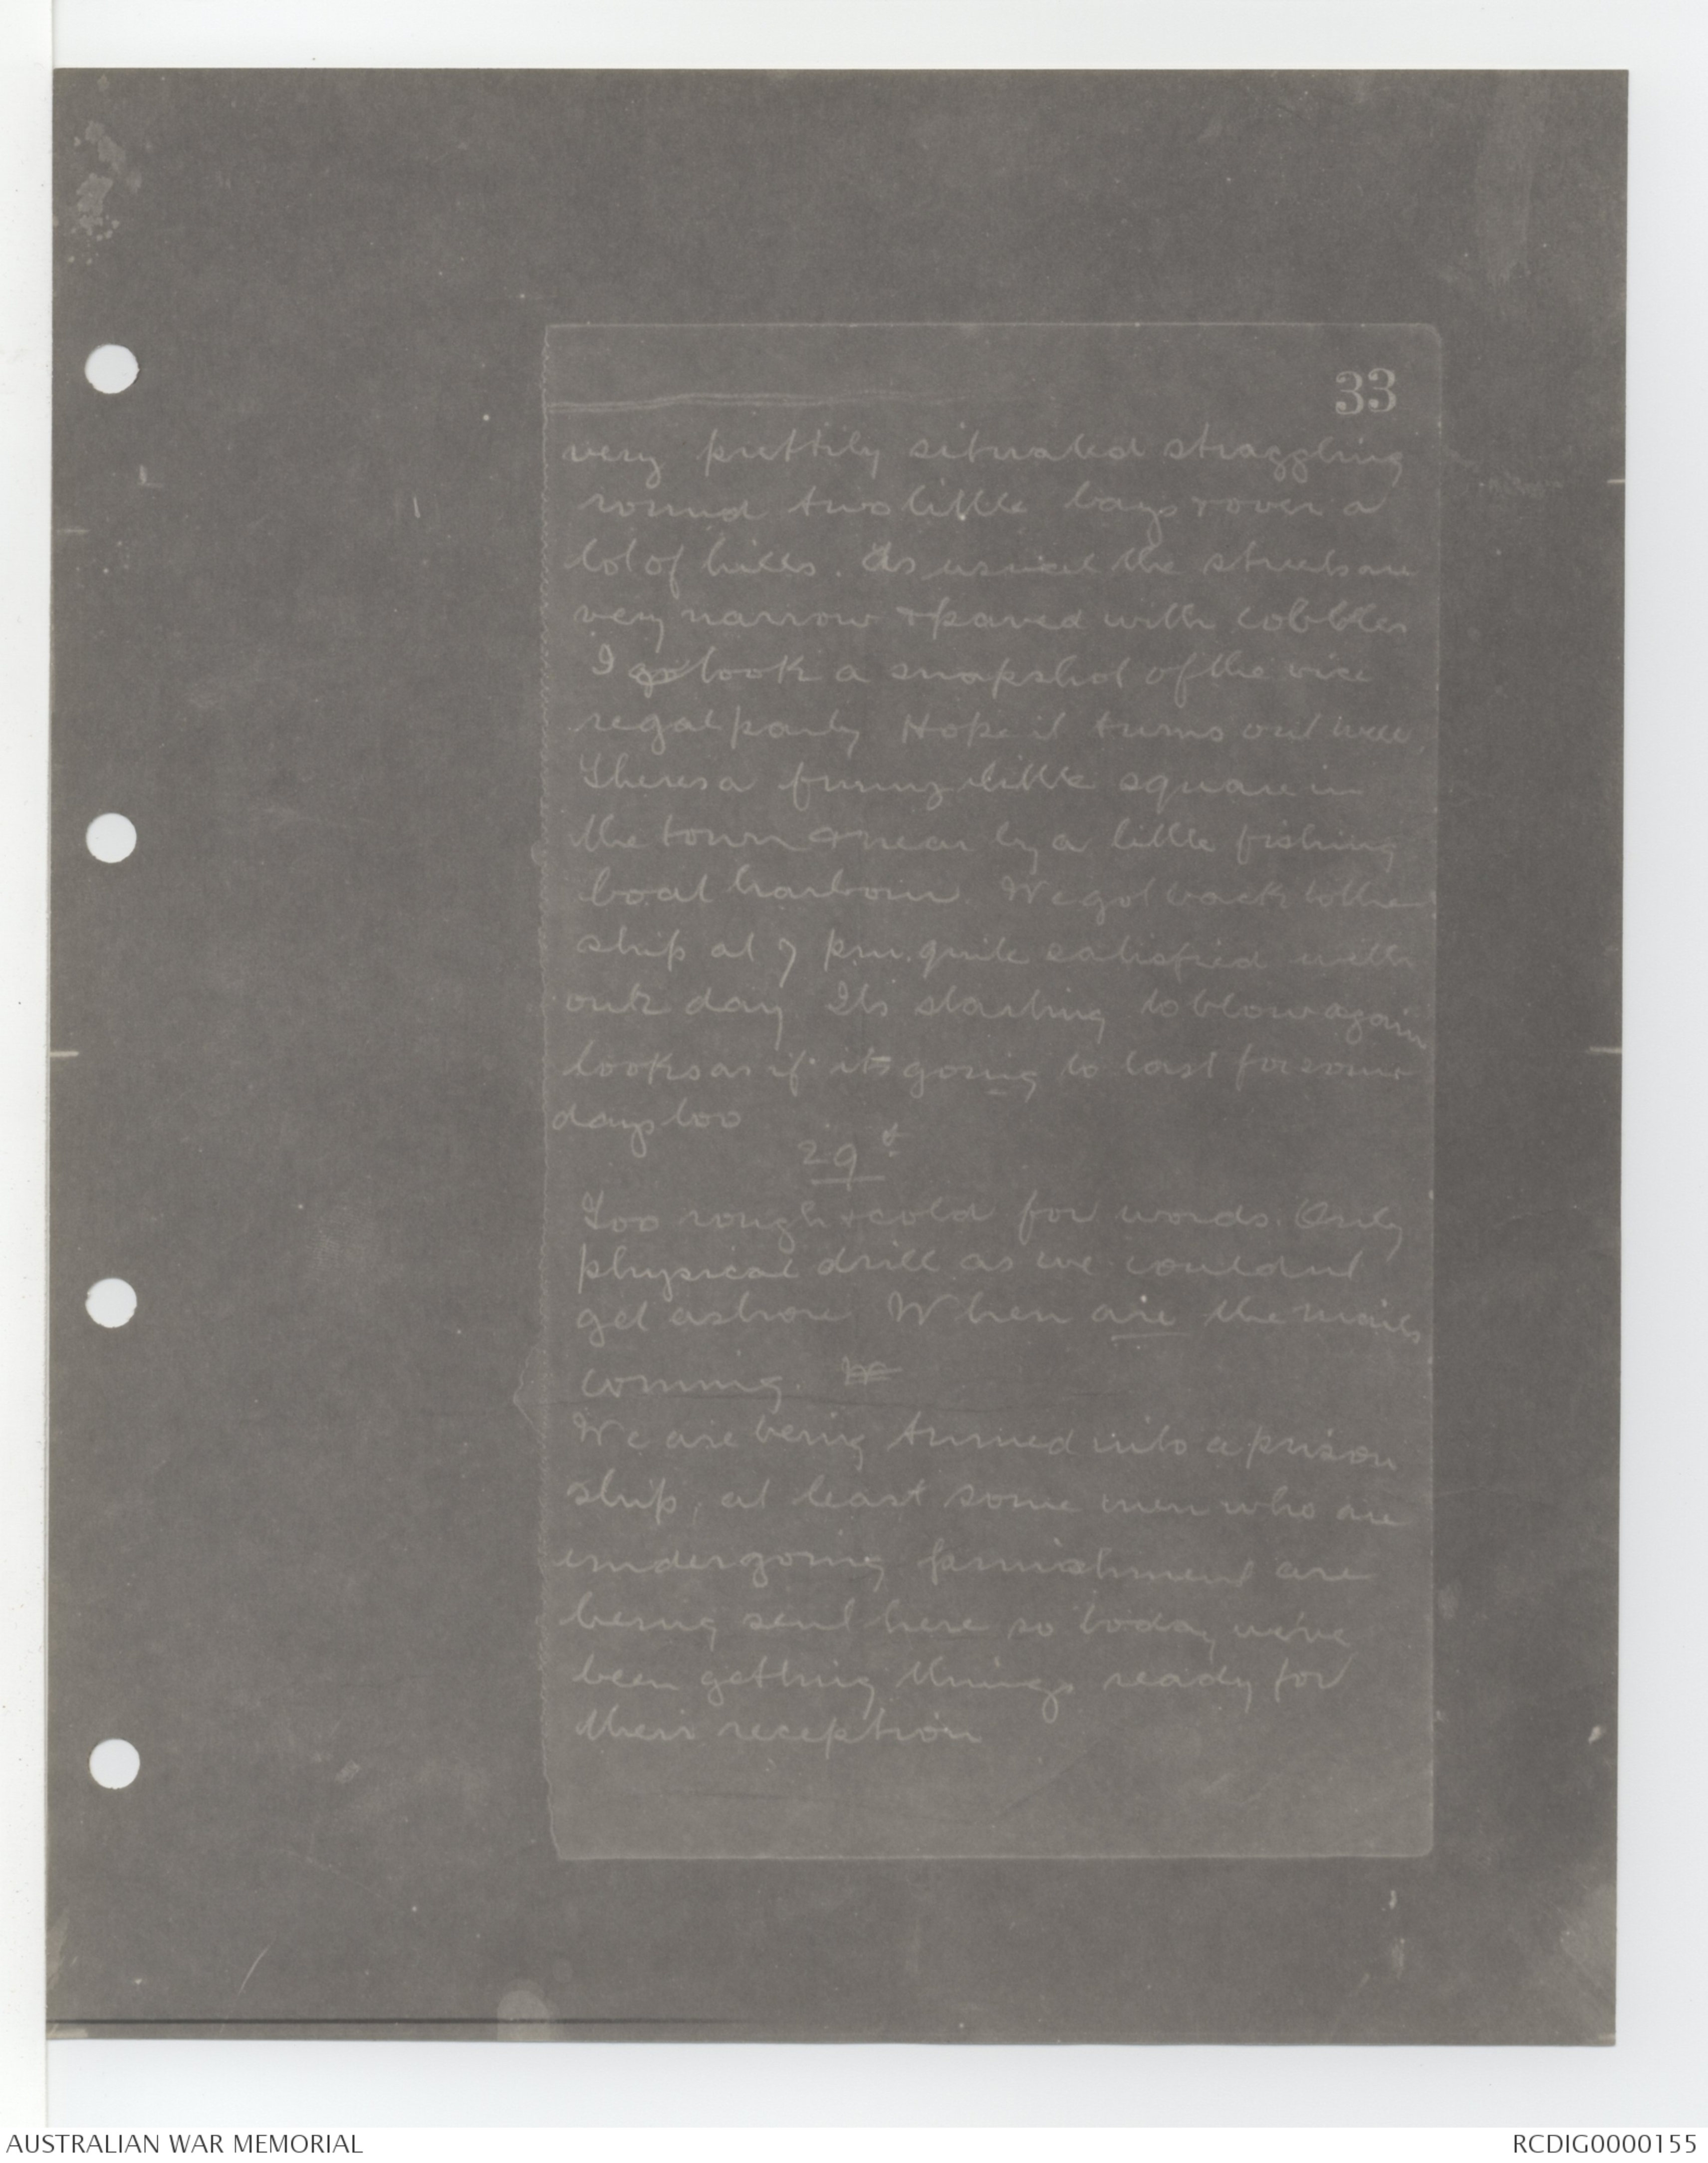 33
very prettily situated straggling
round two little bays & over a
lot of hills. As usual the streets are
very narrow & paved with cobbles
I go took a snapshot of the vice
regal party Hope it turns out well.
Theres a funny little square in
the town & near by a little fishing
boat harbour. We got back to the
ship at 7 pm. quite satisfied with
our day Its starting to blow again
looks as if its going to last for some
days too
29th
Too rough & cold for words. Only
physical drill as we couldnt
get ashore When are the mails
coming.
We are being turned into a prison
ship, at least some men who are
undergoing punishment are
being sent here so today we've
been getting things ready for
their reception
AUSTRALIAN WAR MEMORIAL
RCDIG0000155